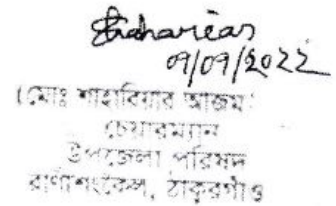 Shaharias
07/07/2022
(মোঃ শাহারিয়ার আজম)
চেয়ারম্যান
উপজেলা পরিষদ
রাণীশংকৈল, ঠাকুরগাঁও